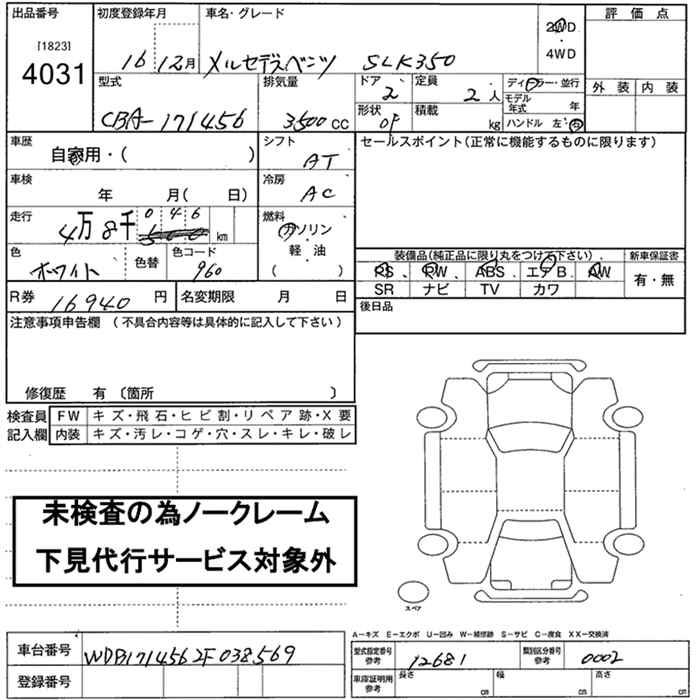 出品番号 初度登録年月 車名・グレード 評価点
[1823] 4031 16 12月 メルセデスベンツ SLK350 2WD・4WD
外装 内装
型式 排気量 ドア 定員 ディーラー・並行
CBA-171456 3500 CC 2 2人 モデル年式 年
形状 積載 ハンドル 左・右
OP kg
車歴 シフト セールスポイント(正常に機能するものに限ります)
自家用・( ) AT
車検 冷房
年 月( 日) AC
走行 燃料
4万8千 046 500 km ガソリン
軽・油
( )
色 色替 色コード
ホワイト 960
装備品(純正品に限り丸をつけて下さい)、 新車保証書
PS、PW、ABS、エアB、AW 有・無
SR ナビ TV カワ
R券 16940 円 名変期限 月 日
後日品
注意事項申告欄 (不具合内容等は具体的に記入して下さい)
修復歴 有 〔箇所 〕
検査員 FW キズ・飛石・ヒビ割・リペア跡・X要
記入欄 内装 キズ・汚レ・コゲ・穴・スレ・キレ・破レ
未検査の為ノークレーム
下見代行サービス対象外
スペア
A―キズ E―エクボ U―凹み W―補修跡 S―サビ C―腐食 XX―交換済
車台番号 WDB1714562F038569
型式指定番号 参考 12681 類別区分番号 参考 0002
登録番号
車庫証明用 参考 長さ cm 幅 cm 高さ cm